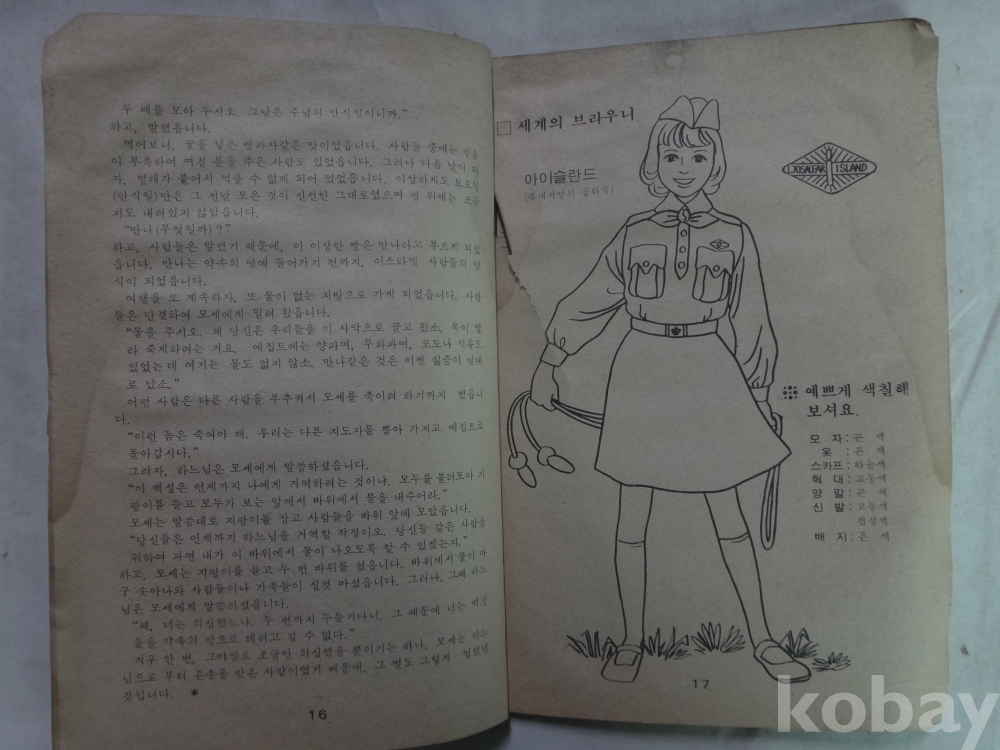 두 배를 모아 두시오. 그날은 주님의 안식일이니까.”
하고, 말했읍니다.
먹어보니, 꿀을 넣은 빵과자같은 맛이었읍니다. 사람들 중에는 믿음
이 부족하여 며칠 분을 주은 사람도 있었읍니다. 그러나 다음 날이 되
자, 벌레가 붙어서 먹을 수 없게 되어 있었읍니다. 이상하게도 토요일
(안식일)만은 그 전날 모은 것이 신선한 그대로였으며 땅 위에는 조금
치도 내려있지 않았읍니다.
“만나(무엇일까)?”
하고, 사람들은 말했기 때문에, 이 이상한 빵은 만나라고 부르게 되었
읍니다. 만나는 약속의 땅에 들어가기 전까지, 이스라엘 사람들의 양
식이 되었읍니다.
여행을 또 계속하자, 또 물이 없는 지방으로 가게 되었읍니다. 사람
들은 단결하여 모세에게 밀려 왔읍니다.
“물을 주시오. 왜 당신은 우리들을 이 사막으로 끌고 왔소. 목이 말
라 죽게하려는 거요. 에집트에는 양파며, 무화과며, 포도나 석류도
있었는데 여기는 물도 없지 않소. 만나같은 것은 이젠 싫증이 날대
로 났소.”
어떤 사람은 다른 사람을 부추켜서 모세를 죽이려 하기까지 했읍니
다.
“이런 놈은 죽여야 해. 우리는 다른 지도자를 뽑아 가지고 에집트로
돌아갑시다.”
그러자, 하느님은 모세에게 말씀하셨읍니다.
“이 백성은 언제까지 나에게 거역하려는 것이냐. 모두를 불러모아 지
팡이를 들고 모두가 보는 앞에서 바위에서 물을 내주어라.”
모세는 말씀대로 지팡이를 잡고 사람들을 바위 앞에 모았읍니다.
“당신들은 언제까지 하느님을 거역할 작정이오. 당신들 같은 사람을
위하여 과연 내가 이 바위에서 물이 나오도록 할 수 있겠는지.”
하고, 모세는 지팡이를 들고 두 번 바위를 쳤읍니다. 바위에서 물이 마
구 솟아나와 사람들이나 가축들이 실컷 마셨읍니다. 그러나, 그때 하느
님은 모세에게 말씀하셨읍니다.
“왜, 너는 의심했느냐. 두 번까지 두들기다니. 그 때문에 너는 백성
들을 약속의 땅으로 데리고 갈 수 없다.”
겨우 한 번, 그야말로 조금만 의심했을 뿐이기는 하나, 모세는 하느
님으로 부터 은총을 받은 사람이었기 때문에, 그 벌도 그렇게 엄했던
것입니다. *
16
세계의 브라우니
아이슬란드
(북대서양의 공화국)
ISLAND
예쁘게 색칠해
보셔요.
모 자 : 곤 색
옷 : 곤 색
스카프 : 하늘색
혁 대 : 고동색
양 말 : 곤 색
신 발 : 고동색
검정색
배 지 : 은 색
17
kobay